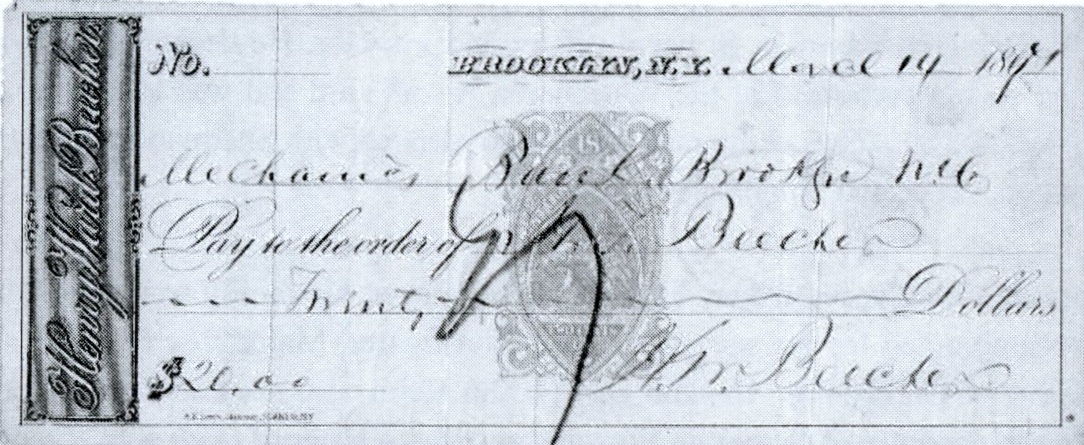 Henry Ward Beecher
No. BROOKLYN, N.Y. March 19 187
Mechanics Bank. Brooklyn
Pay to the order of Beecher
Twenty Dollars
$20.00
H. W. Beecher